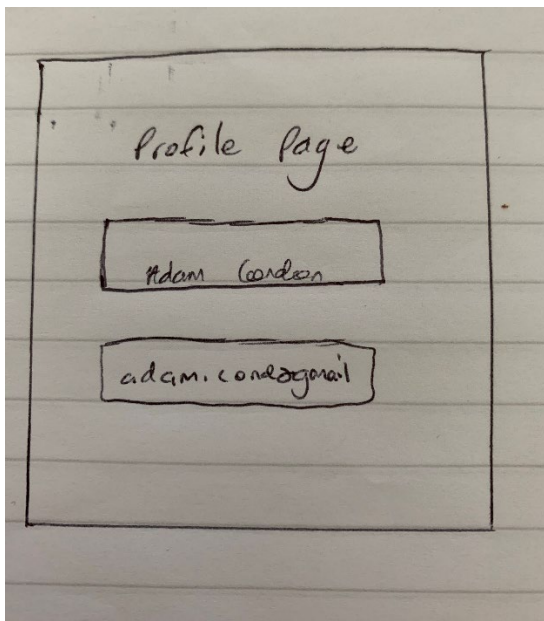 Profile Page
Adam Condron
adam.cond@gmail